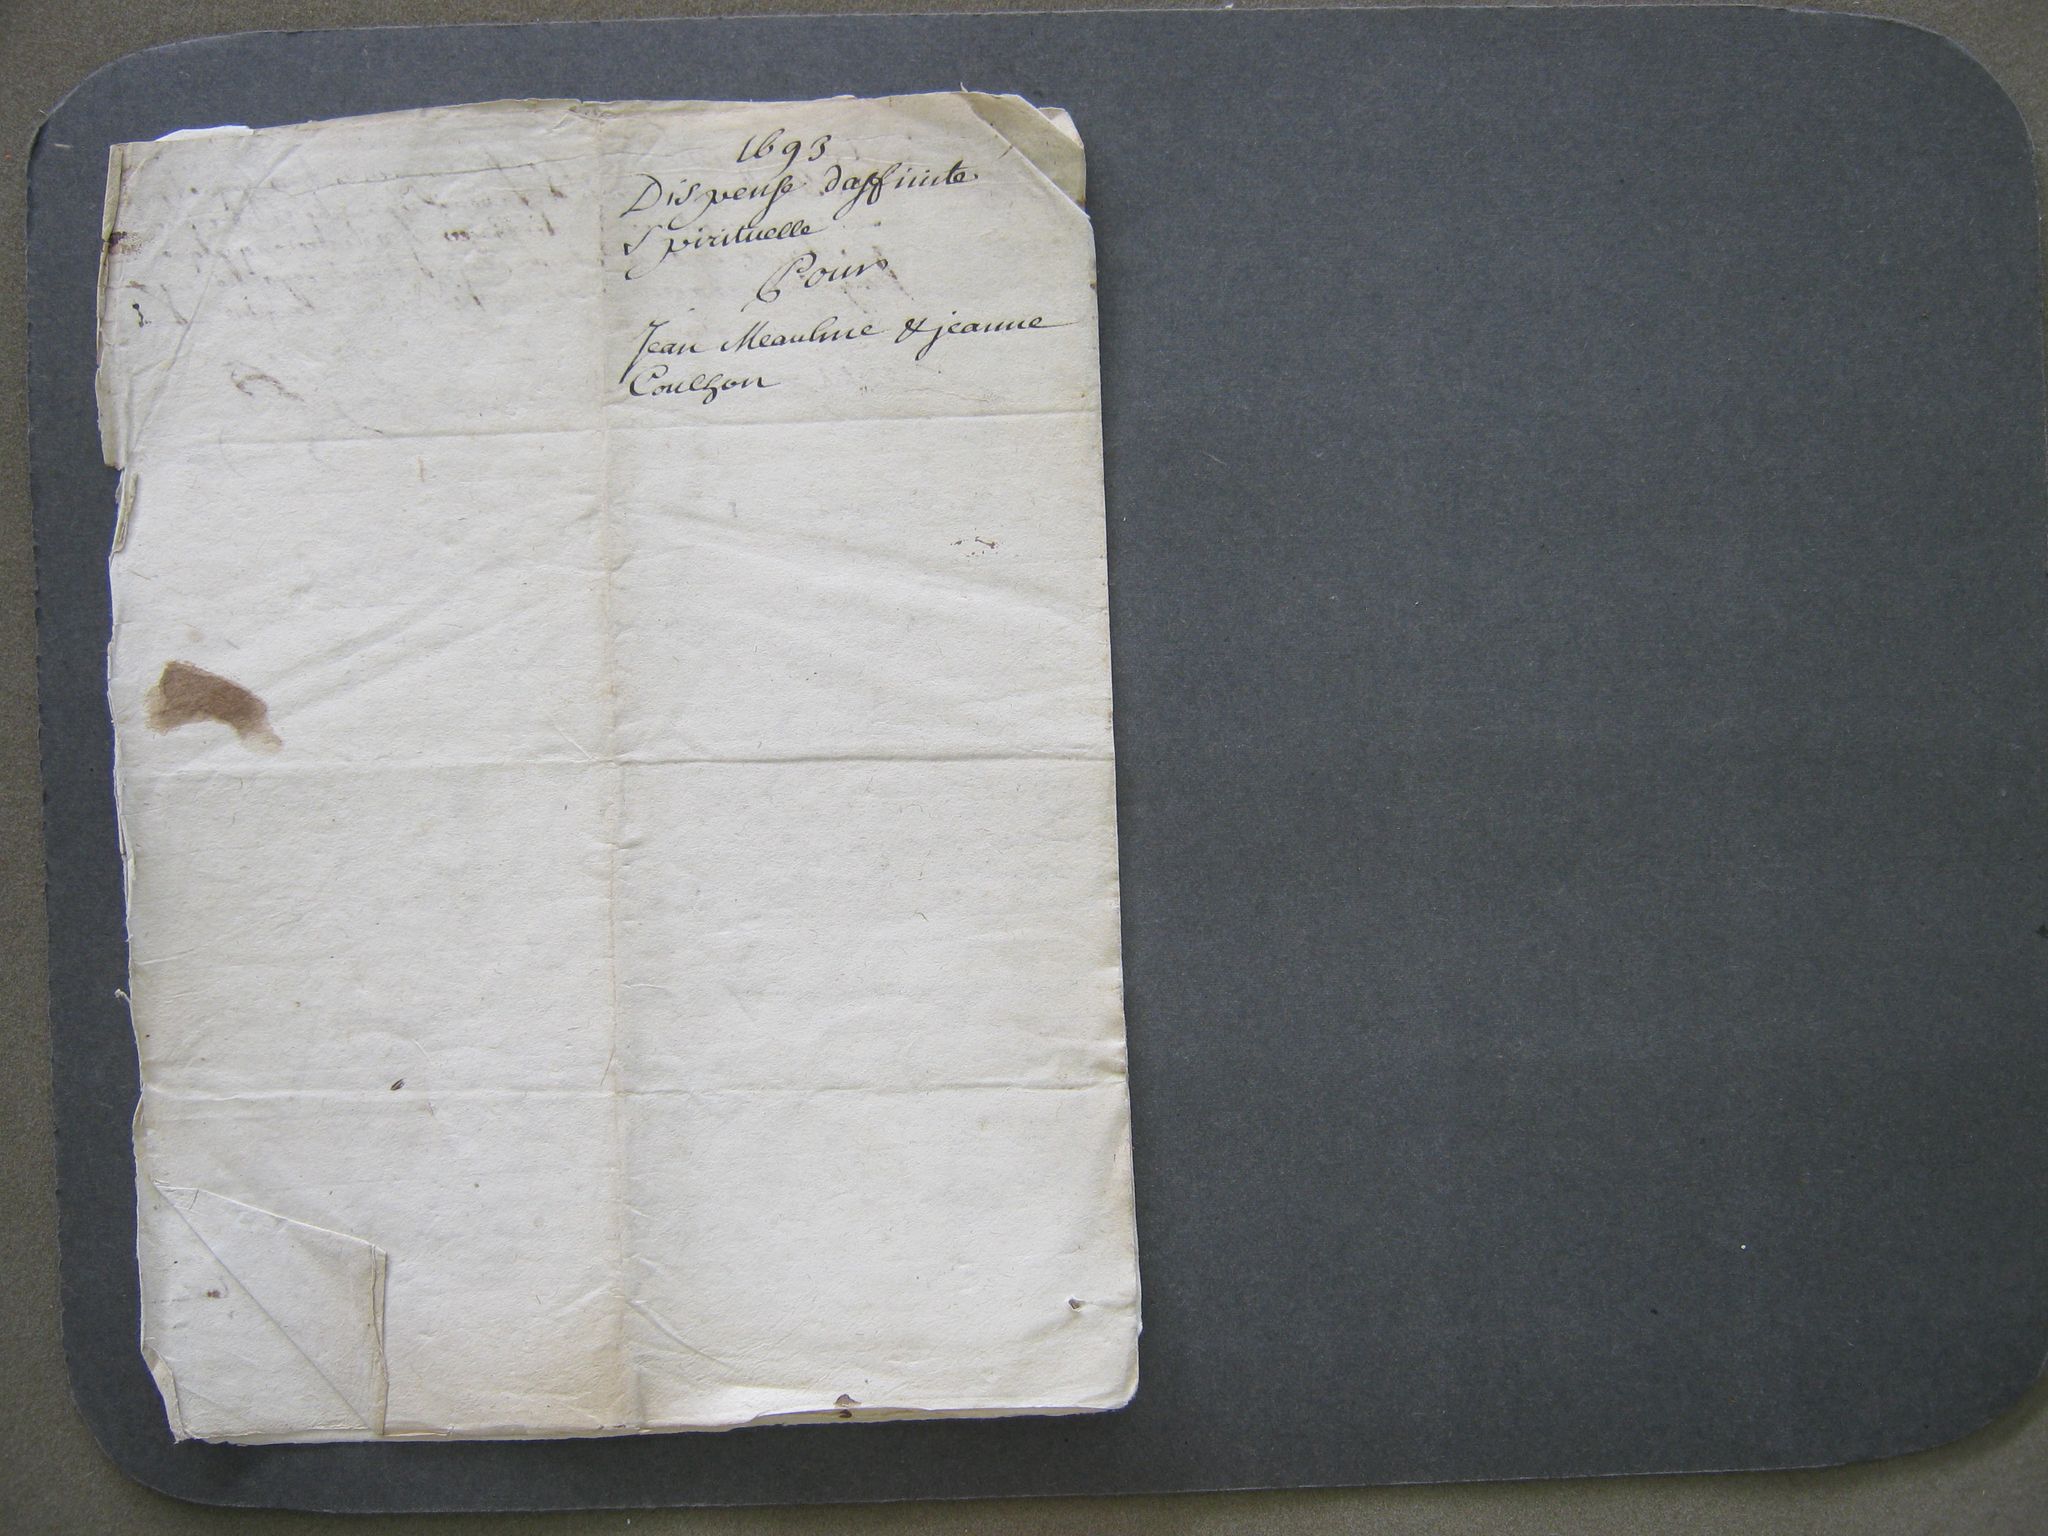 1693
Dispense daffinite
Spirituelle
Pour
Jean Meaulme & jeanne
Coulhon